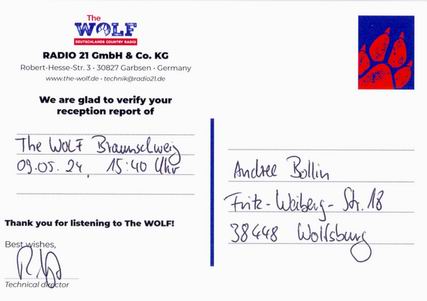 The
WOLF
DEUTSCHLANDS COUNTRY RADIO
RADIO 21 GmbH & Co. KG
Robert-Hesse-Str. 3 • 30827 Garbsen • Germany
www.the-wolf.de • technik@radio21.de
We are glad to verify your
reception report of
The Wolf Braunschweig
09.05.24, 15:40 Uhr
Thank you for listening to The WOLF!
Best wishes,
Technical director
Andree Bollin
Fritz-Weiberg-Str. 18
38448 Wolfsburg